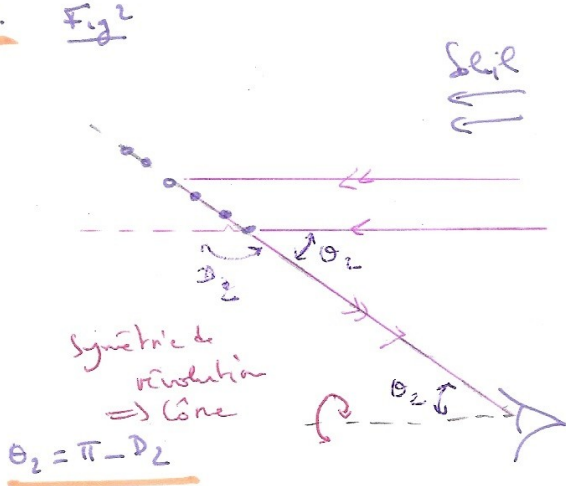 Fig 2
Soleil
θ₂
D₂
Symétrie de
révolution
=> Cône
θ₂
θ₂ = π - D₂